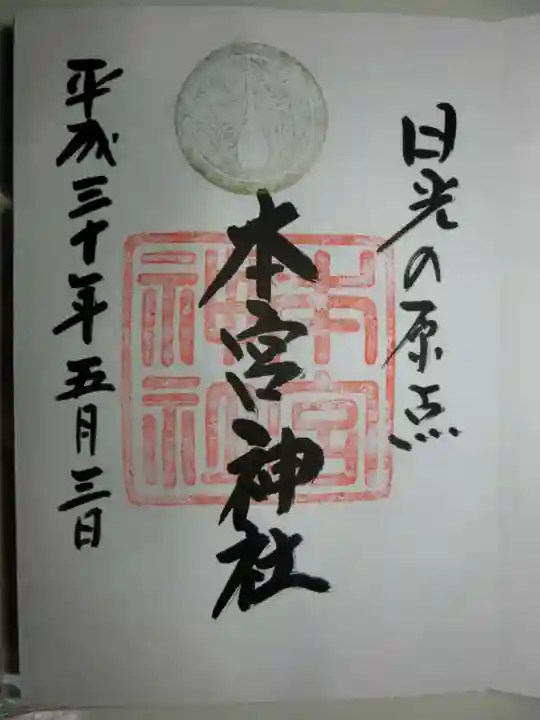 日光の原点
本宮神社
平成三十年五月三日